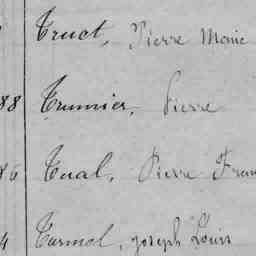 Truct, Pierre Marie
88 Trumier, Pierre
Tual, Pierre Fran
4 Tarmol, Joseph Louis